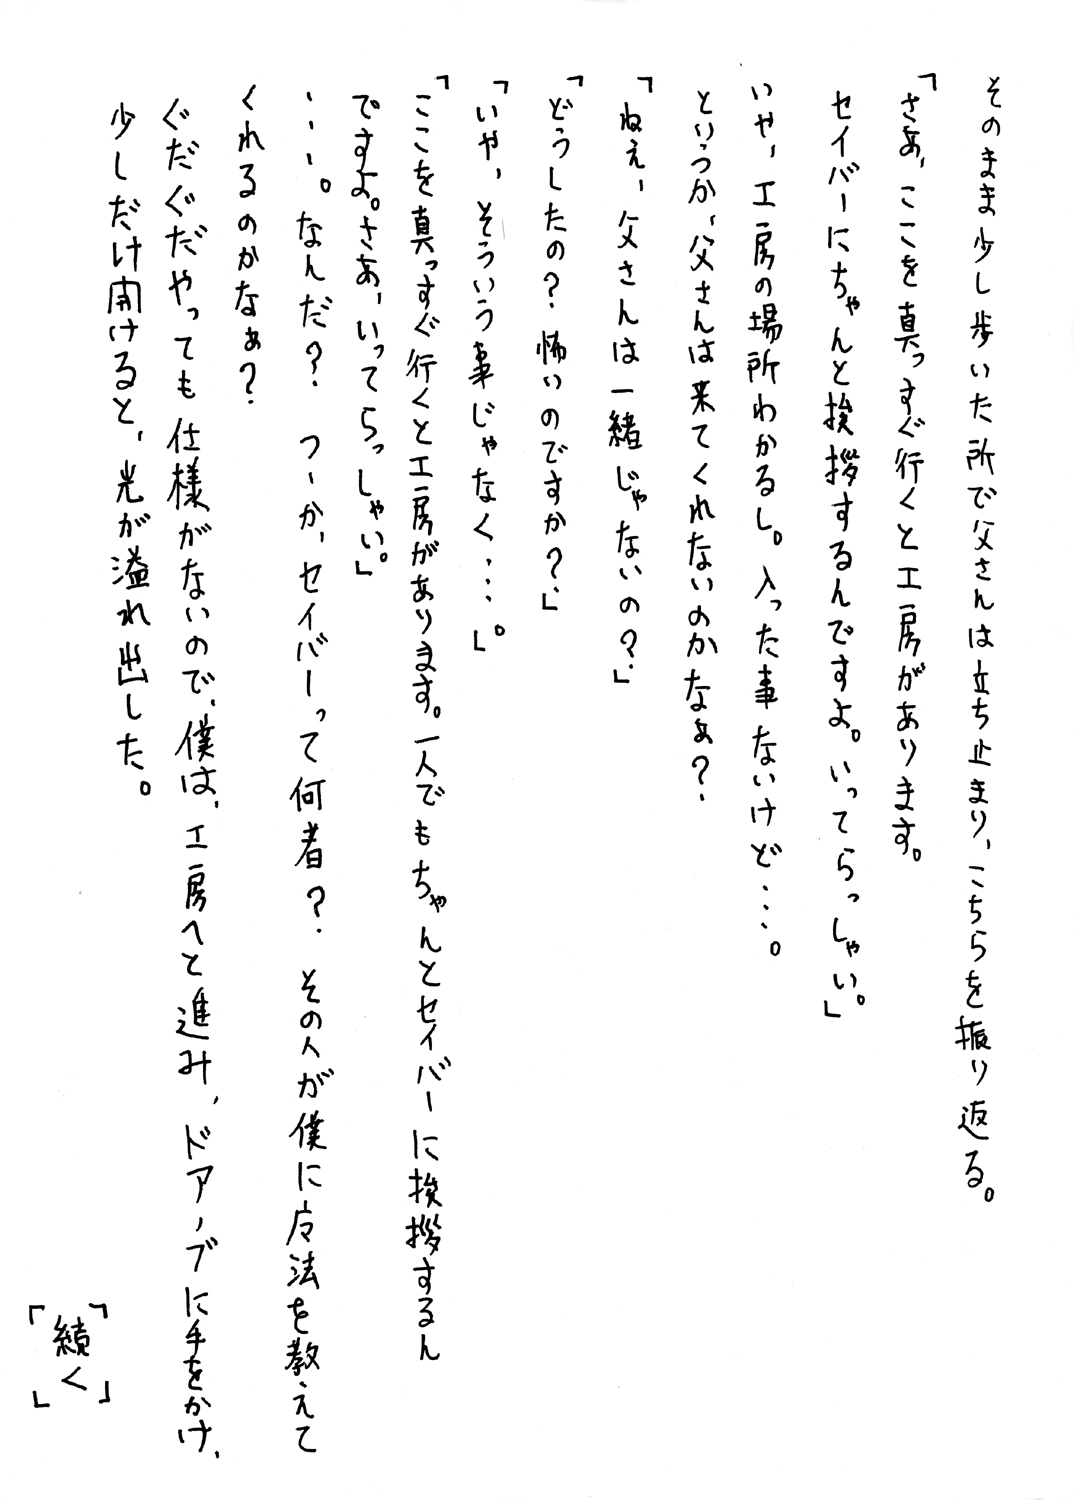 そのまま少し歩いた所で父さんは立ち止まり、こちらを振り返る。
「さあ、ここを真っすぐ行くと工房があります。
セイバーにちゃんと挨拶するんですよ。いってらっしゃい。」
いや、工房の場所わかるし。入った事ないけど・・・。
というか、父さんは来てくれないのかなぁ?
「ねぇ、父さんは一緒じゃないの?」
「どうしたの?怖いのですか?」
「いや、そういう事じゃなく・・・」。
「ここを真っすぐ行くと工房があります。一人でもちゃんとセイバーに挨拶するん
ですよ。さあ、いってらっしゃい。」
・・・。なんだ? つーか、セイバーって何者? その人が僕に魔法を教えて
くれるのかなぁ?
ぐだぐだやっても仕様がないので、僕は、工房へと進み、ドアノブに手をかけ、
少しだけ開けると、光が溢れ出した。
「続く」